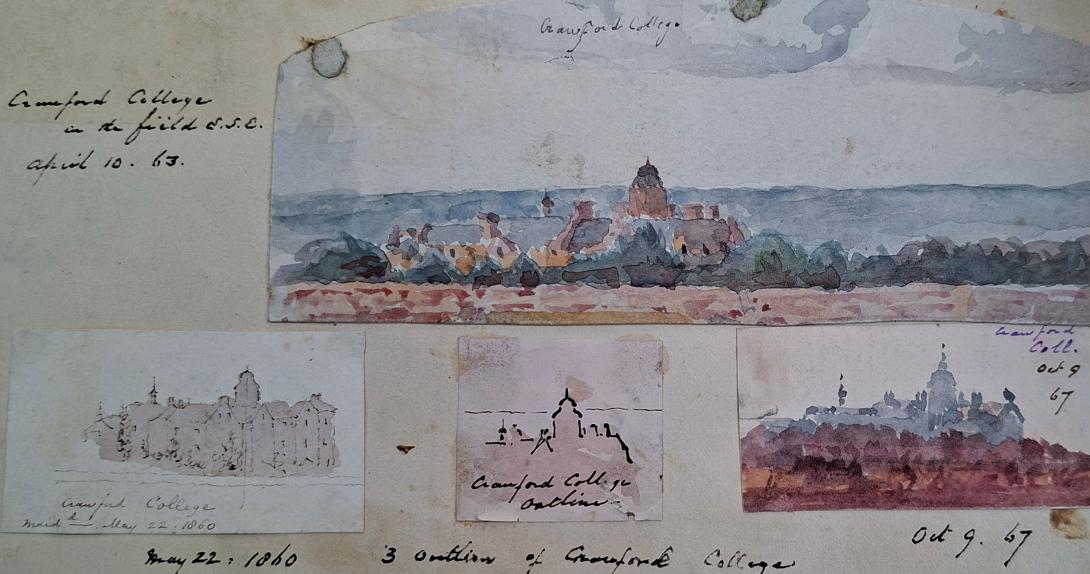 Cranford College
Cranford College
in the field E.S.E.
April 10. 63.
Cranford
Coll.
Oct 9
67
Cranford College
May 22. 1860
Cranford College
Outline
Oct 9. 67
May 22. 1860
3 outline of Cranford College